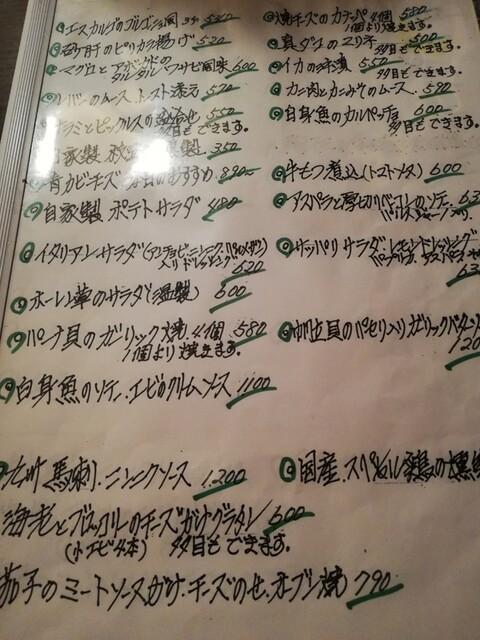 エスカルゴのブルゴーニュ風 540
砂肝のピリカラ揚げ 520
マグロとアボカドの
タルタル ワサビ風味 600
レバーのムース、トースト添え 520
サラミとピックルスの盛合せ 550
多目もできます。
自家製 燻製 350
青カビチーズ おすすめ 890
自家製 ポテトサラダ 480
イタリアンサラダ(アンチョビ・ニンニク・パルメザン
入りドレッシング) 620
ホーレン草のサラダ(温製) 600
パーナ貝のガーリック焼 4個 580
1個より焼きます。
白身魚のソテー、エビのクリームソース 1100
馬刺、ニンニクソース 1,200
海老とブロッコリーのチーズがけグラタン 600
(小エビ4本) 多目もできます。
茄子のミートソースがけ、チーズのせ、オーブン焼 790
焼チーズのカナッペ 4個 580
1個より焼きます。
真ダコのマリネ 500
多目もできます。
イカの 550
多目もできます。
カニ肉とカニみそのムース 580
白身魚のカルパッチョ 600
多目もできます。
牛もつ煮込(トマトソース) 600
アスパラと厚切りベーコンのソテー 63
サッパリサラダ、レモンドレッシング
63
帆立貝のパセリ入りガーリックバターソ
120
国産、スペシャル鶏の燻